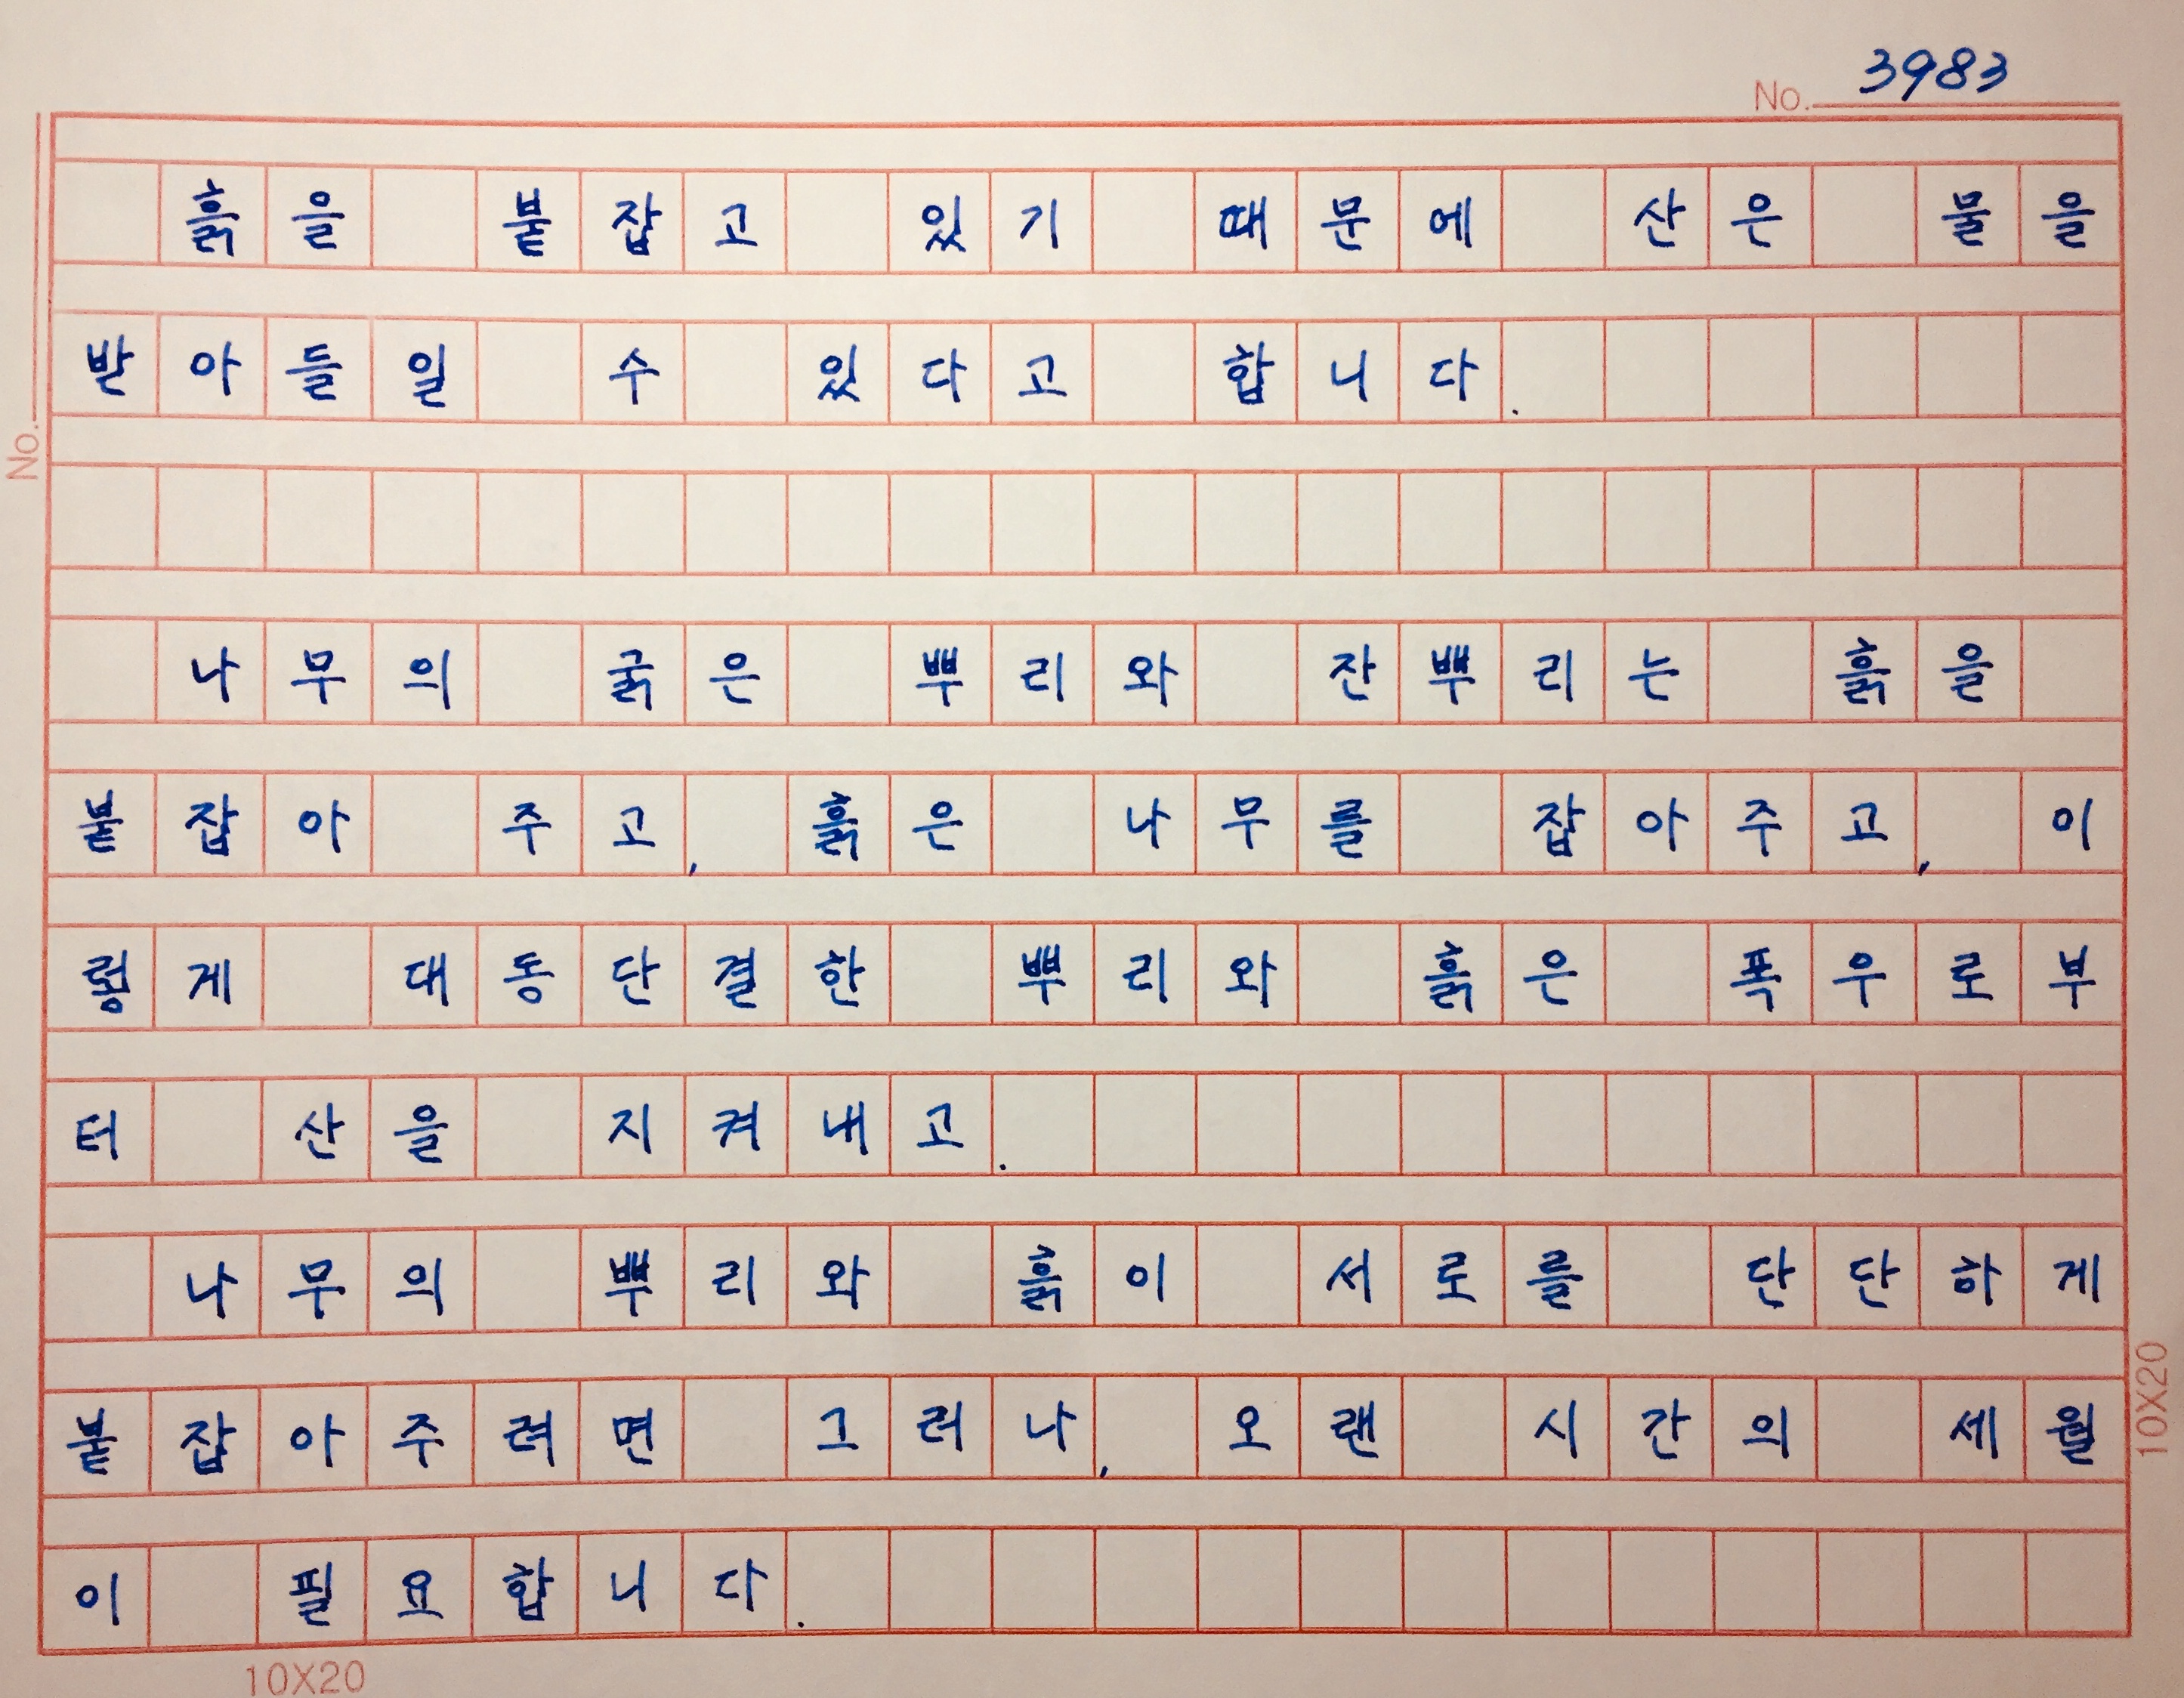 No. 3983
흙을 붙잡고 있기 때문에 산은 물을
받아들일 수 있다고 합니다.
No.
나무의 굵은 뿌리와 잔뿌리는 흙을
붙잡아 주고, 흙은 나무를 잡아주고, 이
렇게 대동단결한 뿌리와 흙은 폭우로부
터 산을 지켜내고.
나무의 뿌리와 흙이 서로를 단단하게
붙잡아주려면 그러나, 오랜 시간의 세월
이 필요합니다.
10X20
10X20